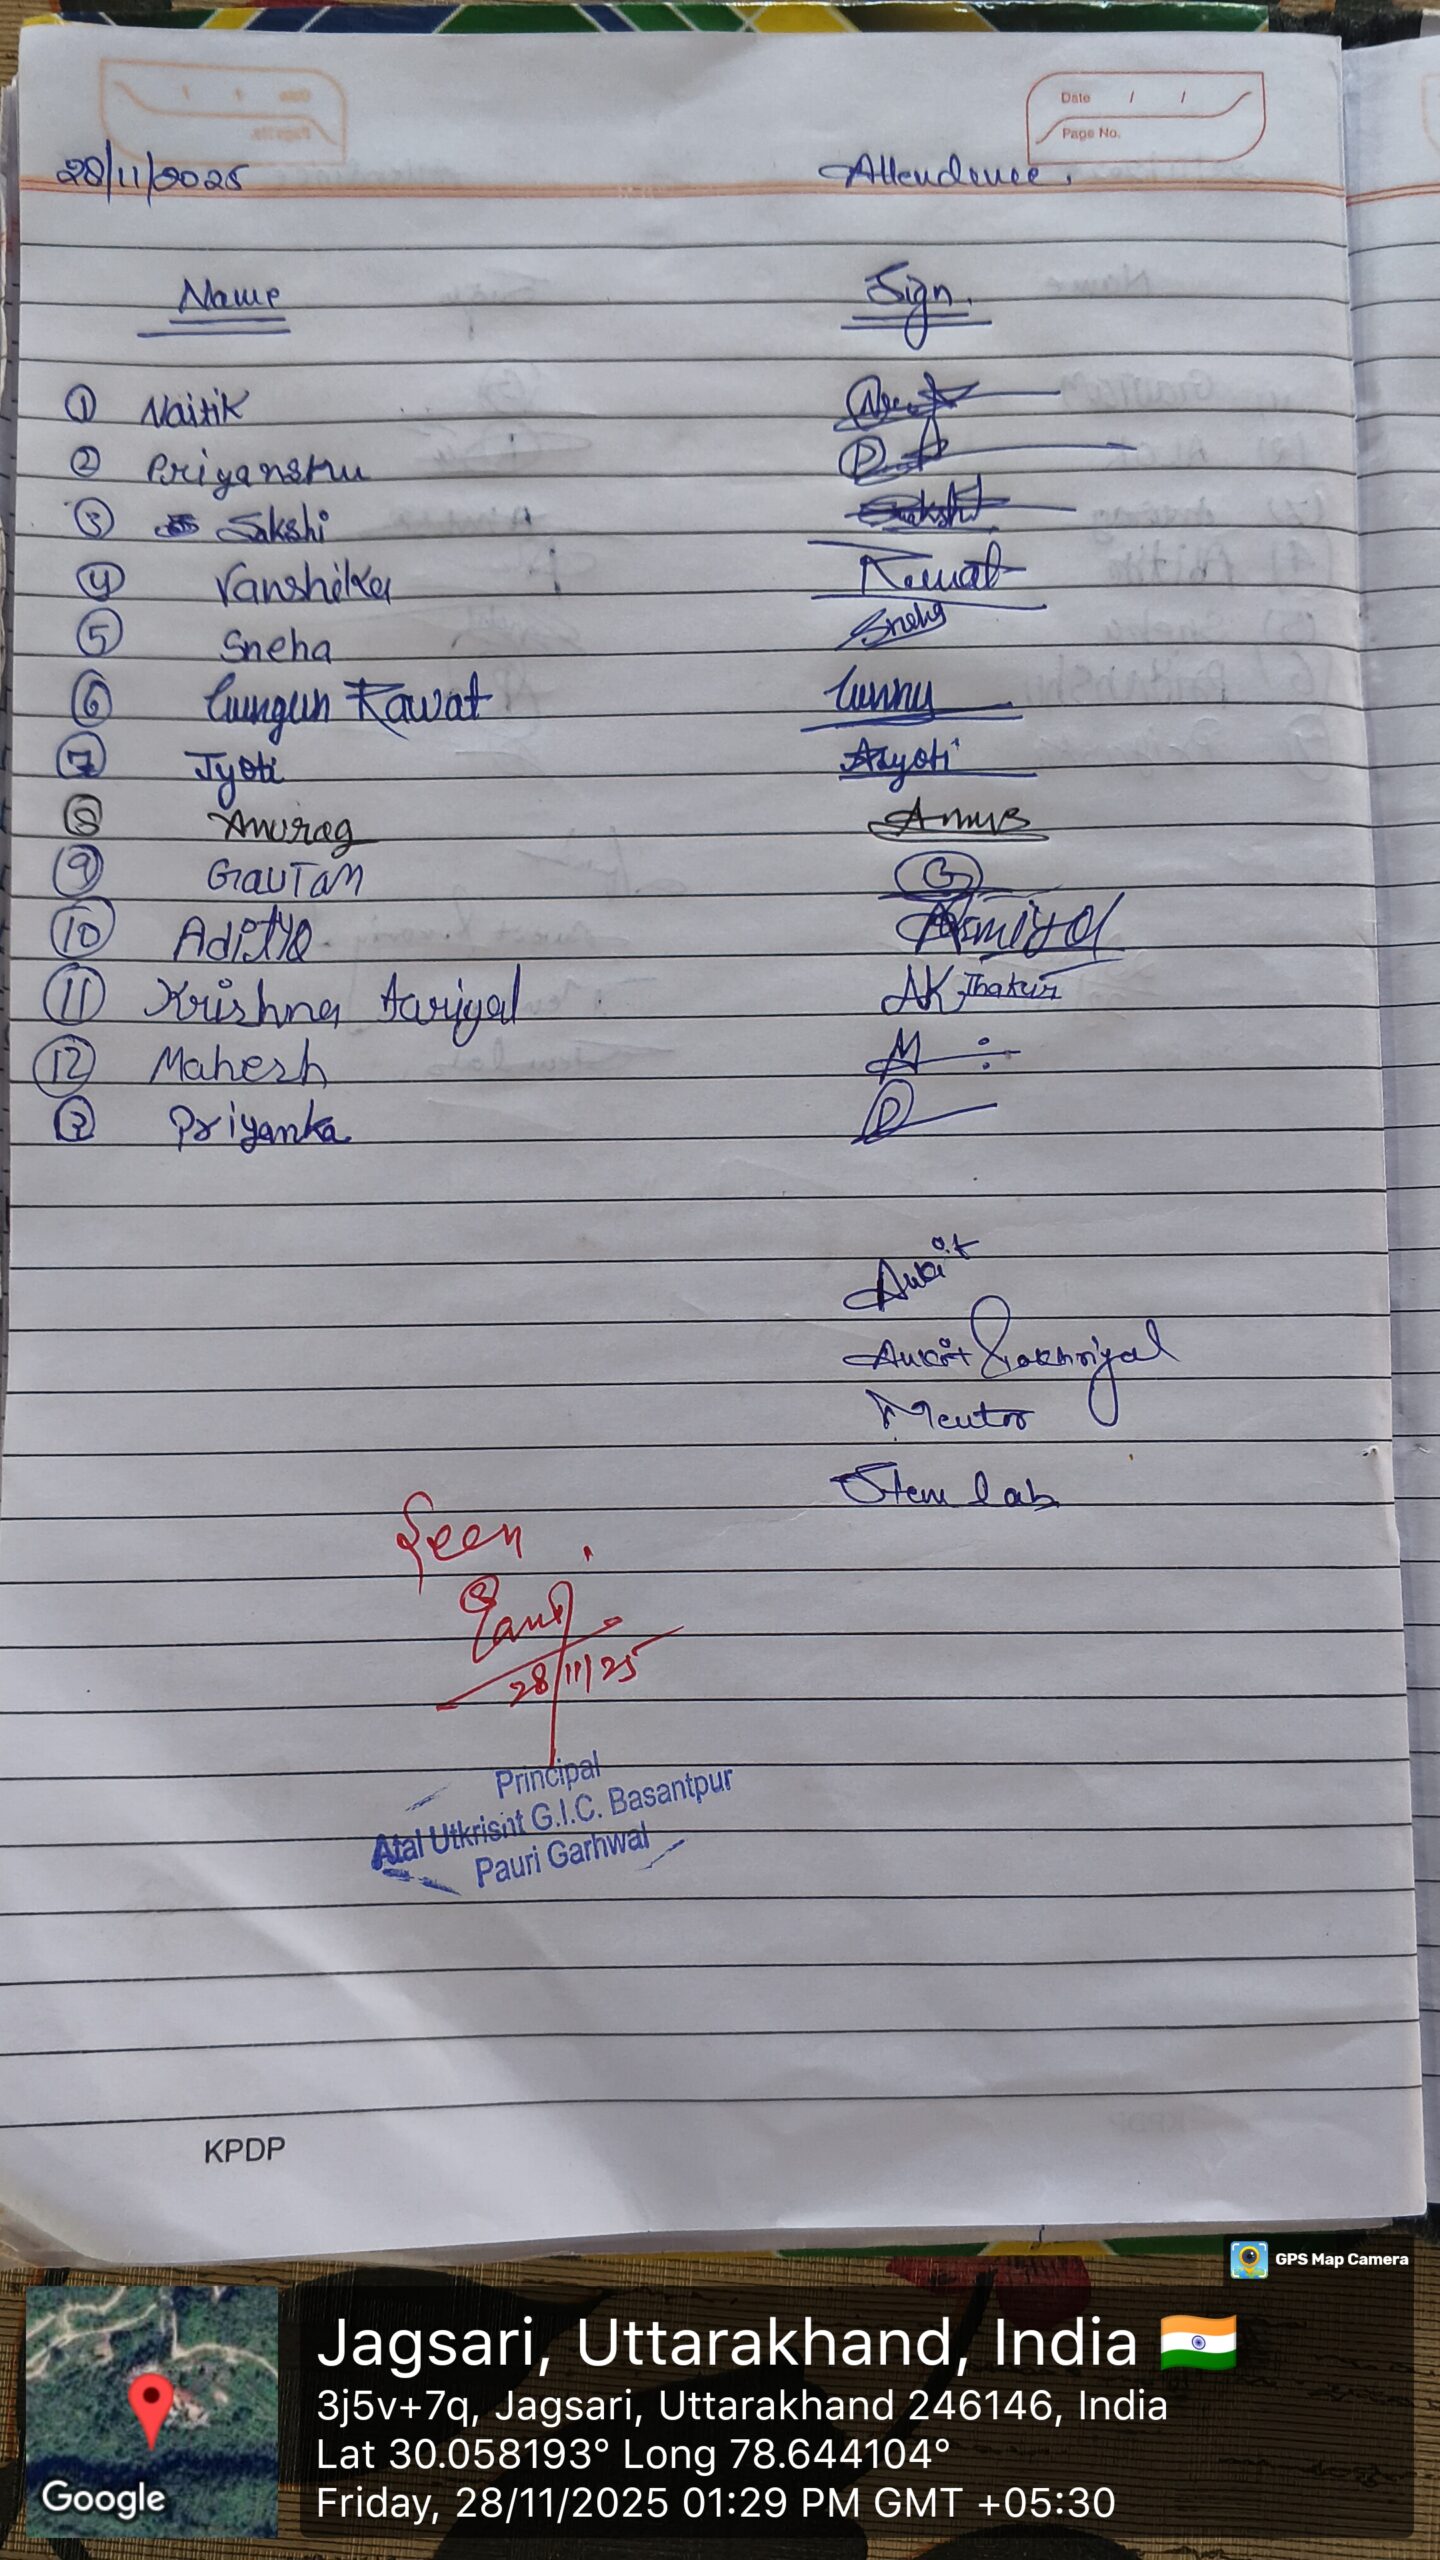 Date / /
Page No.
28/11/2025 Attendence.
Name Sign.
1 Naitik
2 Priyanshu
3 Sakshi Sakshi
4 Vanshika Rawat
5 Sneha Sneha
6 Gungun Rawat Gunnu
7 Jyoti Jyoti
8 Anurag
9 GauTam G
10 Aditya
11 Krishna Aariyal AK Thakur
12 Mahesh M
Priyanka P
Ankit
Ankit Pokhriyal
Mentor
Stem lab
Seen.
28/11/25
Principal
Atal Utkrisht G.I.C. Basantpur
Pauri Garhwal
KPDP
GPS Map Camera
Google
Jagsari, Uttarakhand, India
3j5v+7q, Jagsari, Uttarakhand 246146, India
Lat 30.058193° Long 78.644104°
Friday, 28/11/2025 01:29 PM GMT +05:30